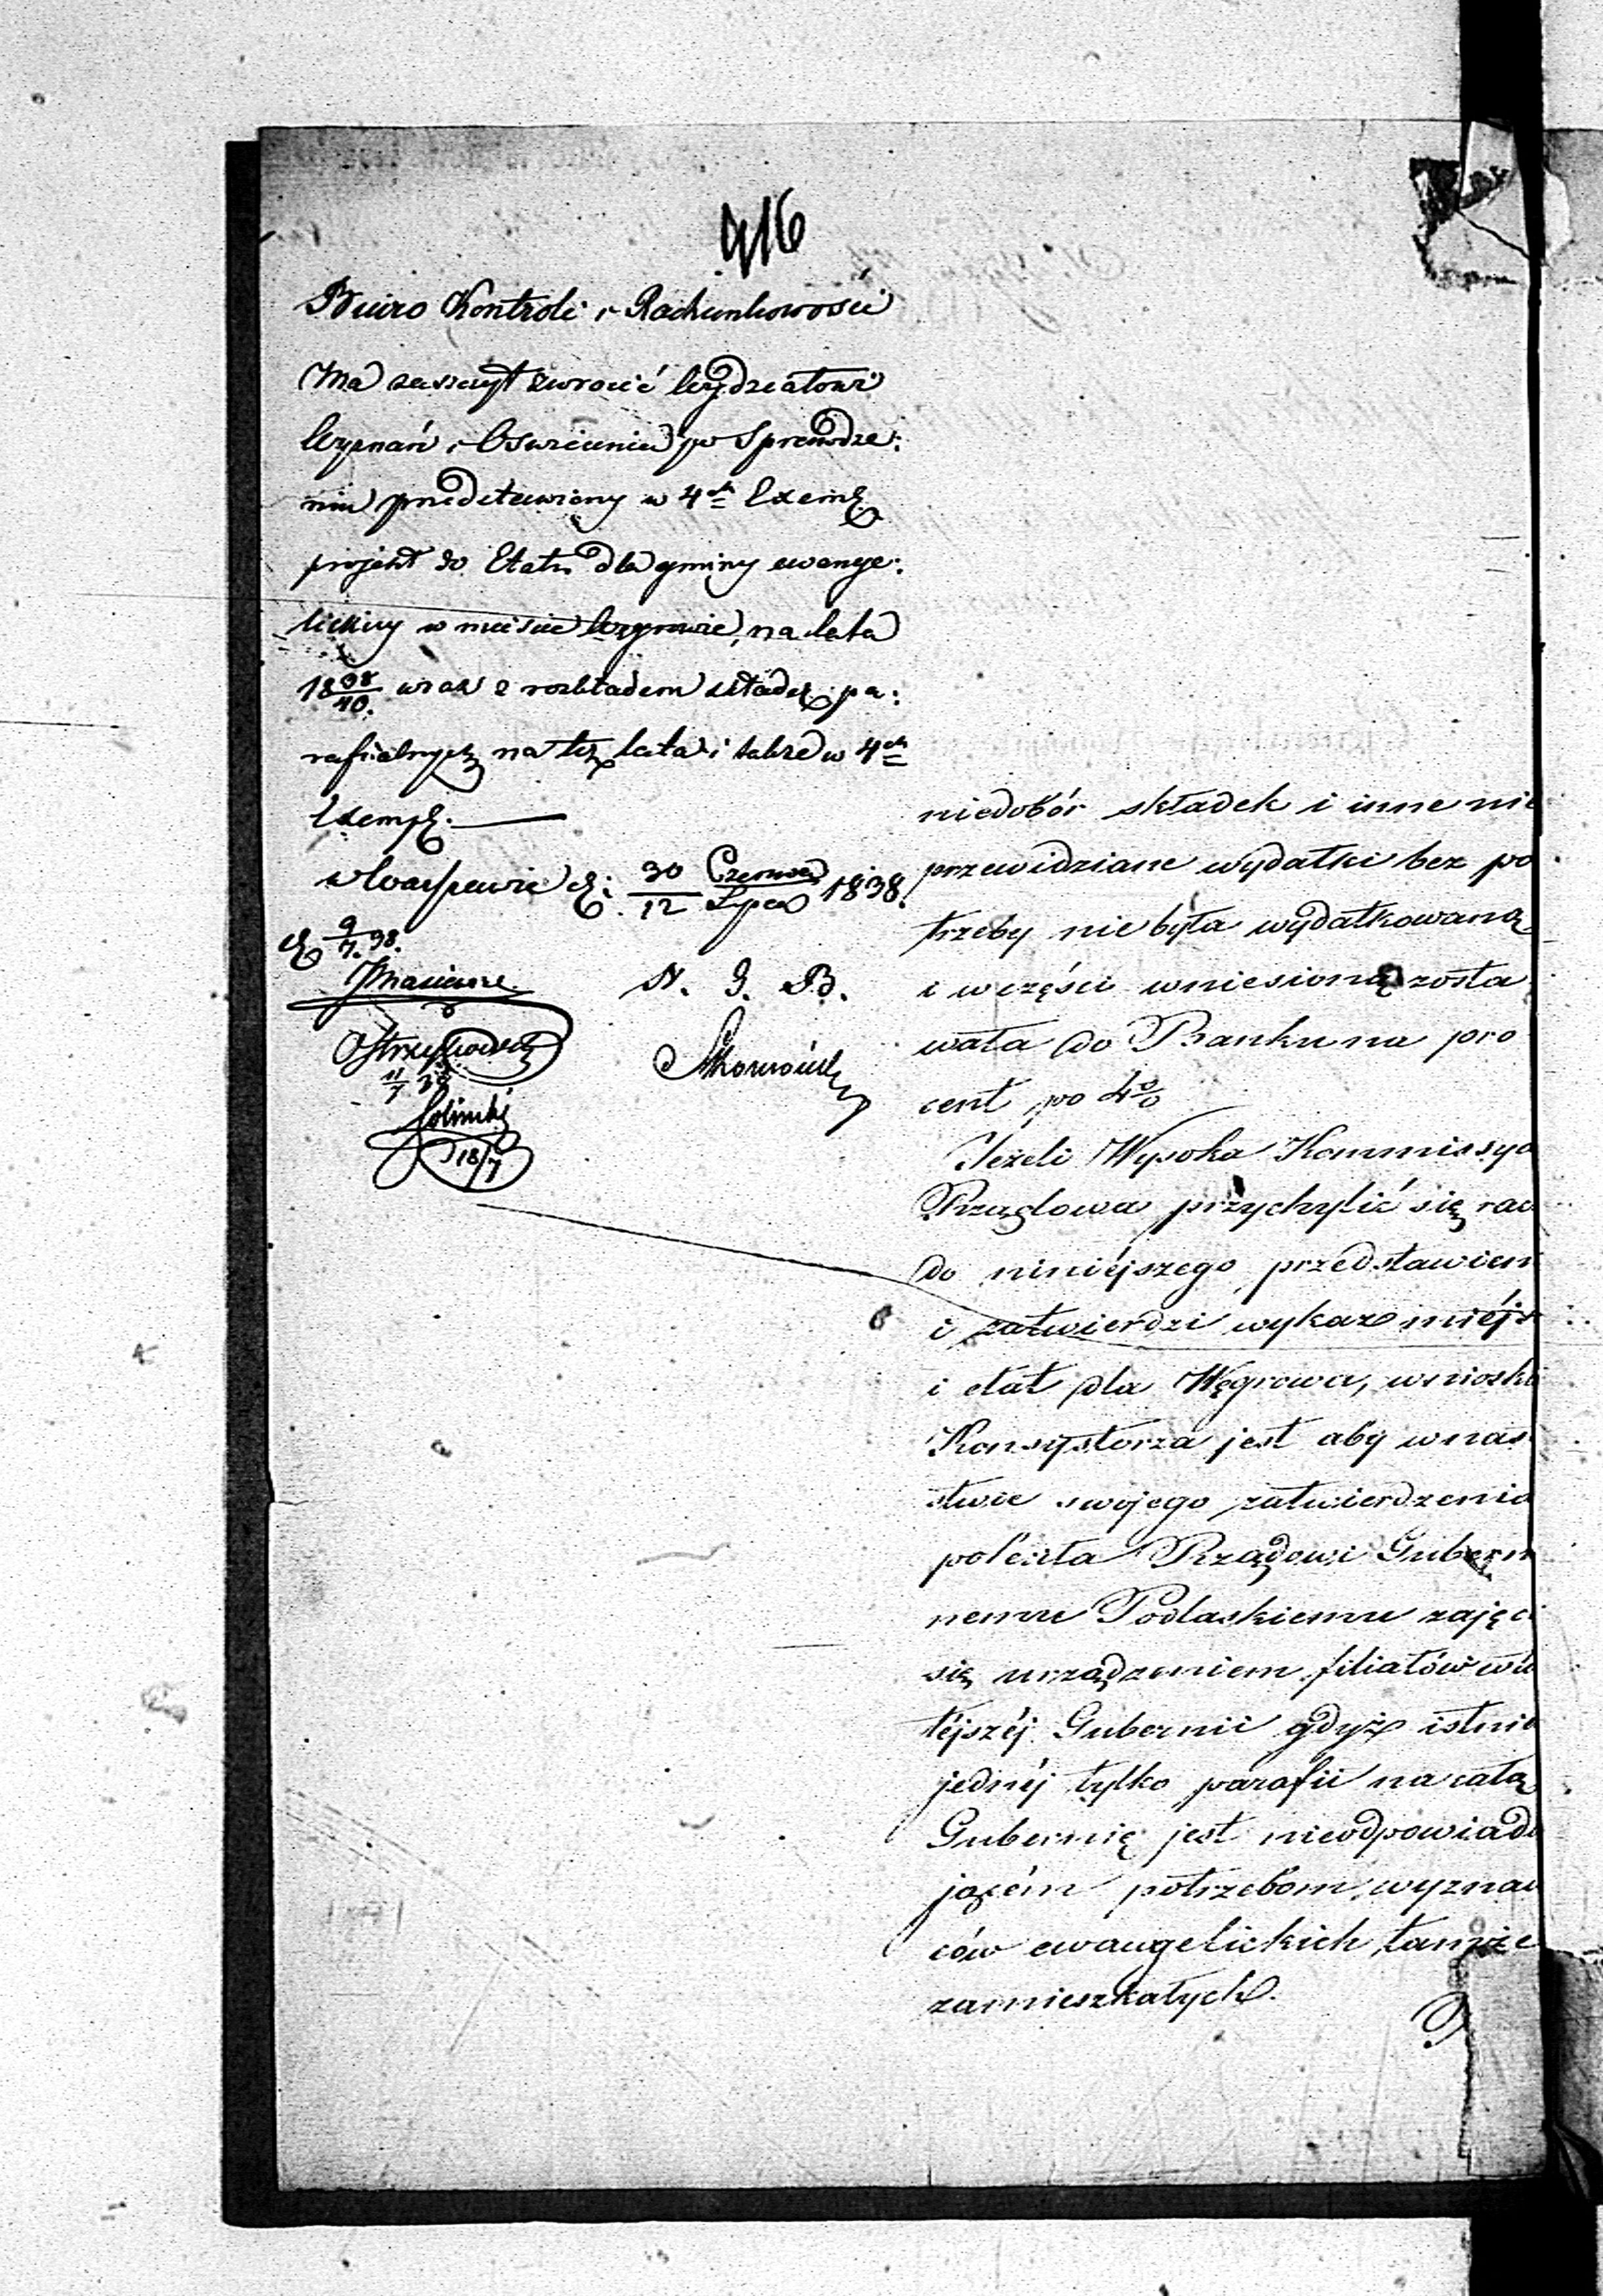 916
Biuro Kontroli i Rachunkowości
Ma zaszczyt zwrócić Wydziałowi
Wyznań i Oświecenia po Sprawdze:
niu przedstawiony w 4ch Exempl
projekt do Etatu dla gminy ewange:
lickiey w mieście Węgrowie, na lata
1838/40. wraz z rozkładem składek pa:
rafialnych na też lata i także w 4ch
Exempl.
w Warszawie d: 30 Czerwca / 12 Lipca 1838.
d 9/7. 38.
N. J. B.
11/7 38
18/7
niedobór składek i inne nie
przewidziane wydatki bez po
trzeby nie była wydatkowaną
i w części wniesioną zosta
wała do Banku na pro
cent po 4%
Jeżeli Wysoka Kommissya
Rządowa przychylić się rac
do niniéjszego przedstawien
i zatwierdzi wykaz miéjs
i etat dla Węgrowa, wniosk
Konsystorza jest aby w nas
stwie swojego zatwierdzenia
poleciła Rządowi Gubern
nemu Podlaskiemu zajęci
się urządzeniem filiałów w
téjszéj Gubernii gdyż istnie
jednéj tylko parafii na całą
Gubernię jest nieodpowiada
jącém potrzebom wyznaw
ców ewangelickich tamże
zamieszkałych.